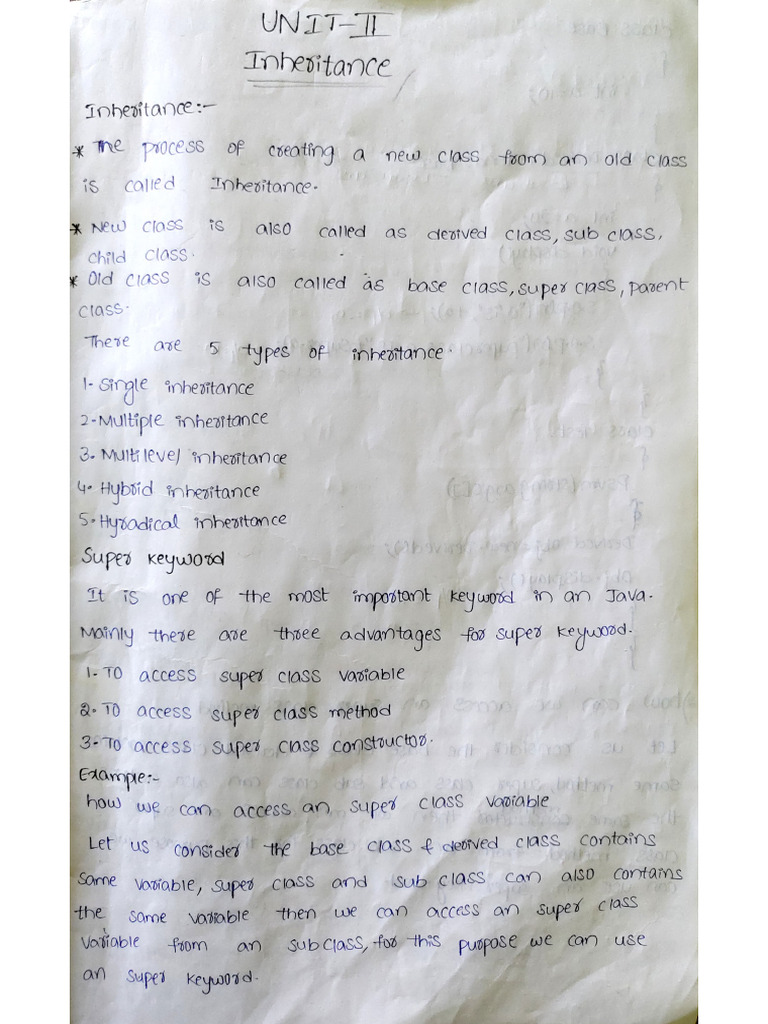 UNIT-II
Inheritance
Inheritance:-
* The process of creating a new class from an old class
is called Inheritance.
* New class is also called as derived class, sub class,
child class.
* Old class is also called as base class, super class, parent
class.
There are 5 types of inheritance.
1- Single inheritance
2- Multiple inheritance
3. Multilevel inheritance
4. Hybrid inheritance
5. Hyradical inheritance
Super keyword
It is one of the most important keyword in an Java.
Mainly there are three advantages for super keyword.
1. To access super class variable
2. To access super class method
3. To access super class constructor.
Example:-
how we can access an super class variable
Let us consider the base class & derived class contains
same variable, super class and sub class can also contains
the same variable then we can access an super class
variable from an subclass, for this purpose we can use
an super keyword.